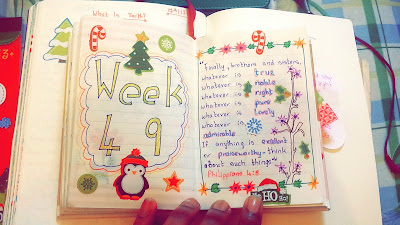 What Is Truth?
Week
49
"Finally, brothers and sisters,
whatever is true
whatever is noble
whatever is right
whatever is pure
whatever is lovely
whatever is
admirable
If anything is excellent
or praiseworthy-think
about such things"
Philippians 4:8
Ho HO Ho!
3+